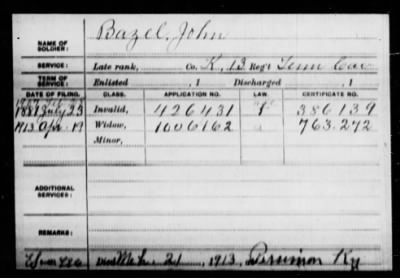 NAME OF SOLDIER: Bazel, John
SERVICE: Late rank, Co. K, 13 Reg't Tenn Cav
TERM OF SERVICE: Enlisted , 1 Discharged , 1
DATE OF FILING. CLASS. APPLICATION NO. LAW. CERTIFICATE NO.
1881 July 23 Invalid, 426431 386139
1913 Apr. 19 Widow, 1006162 763.272
Minor,
ADDITIONAL SERVICES:
REMARKS:
died Mch 21, 1913, Persimon Ky